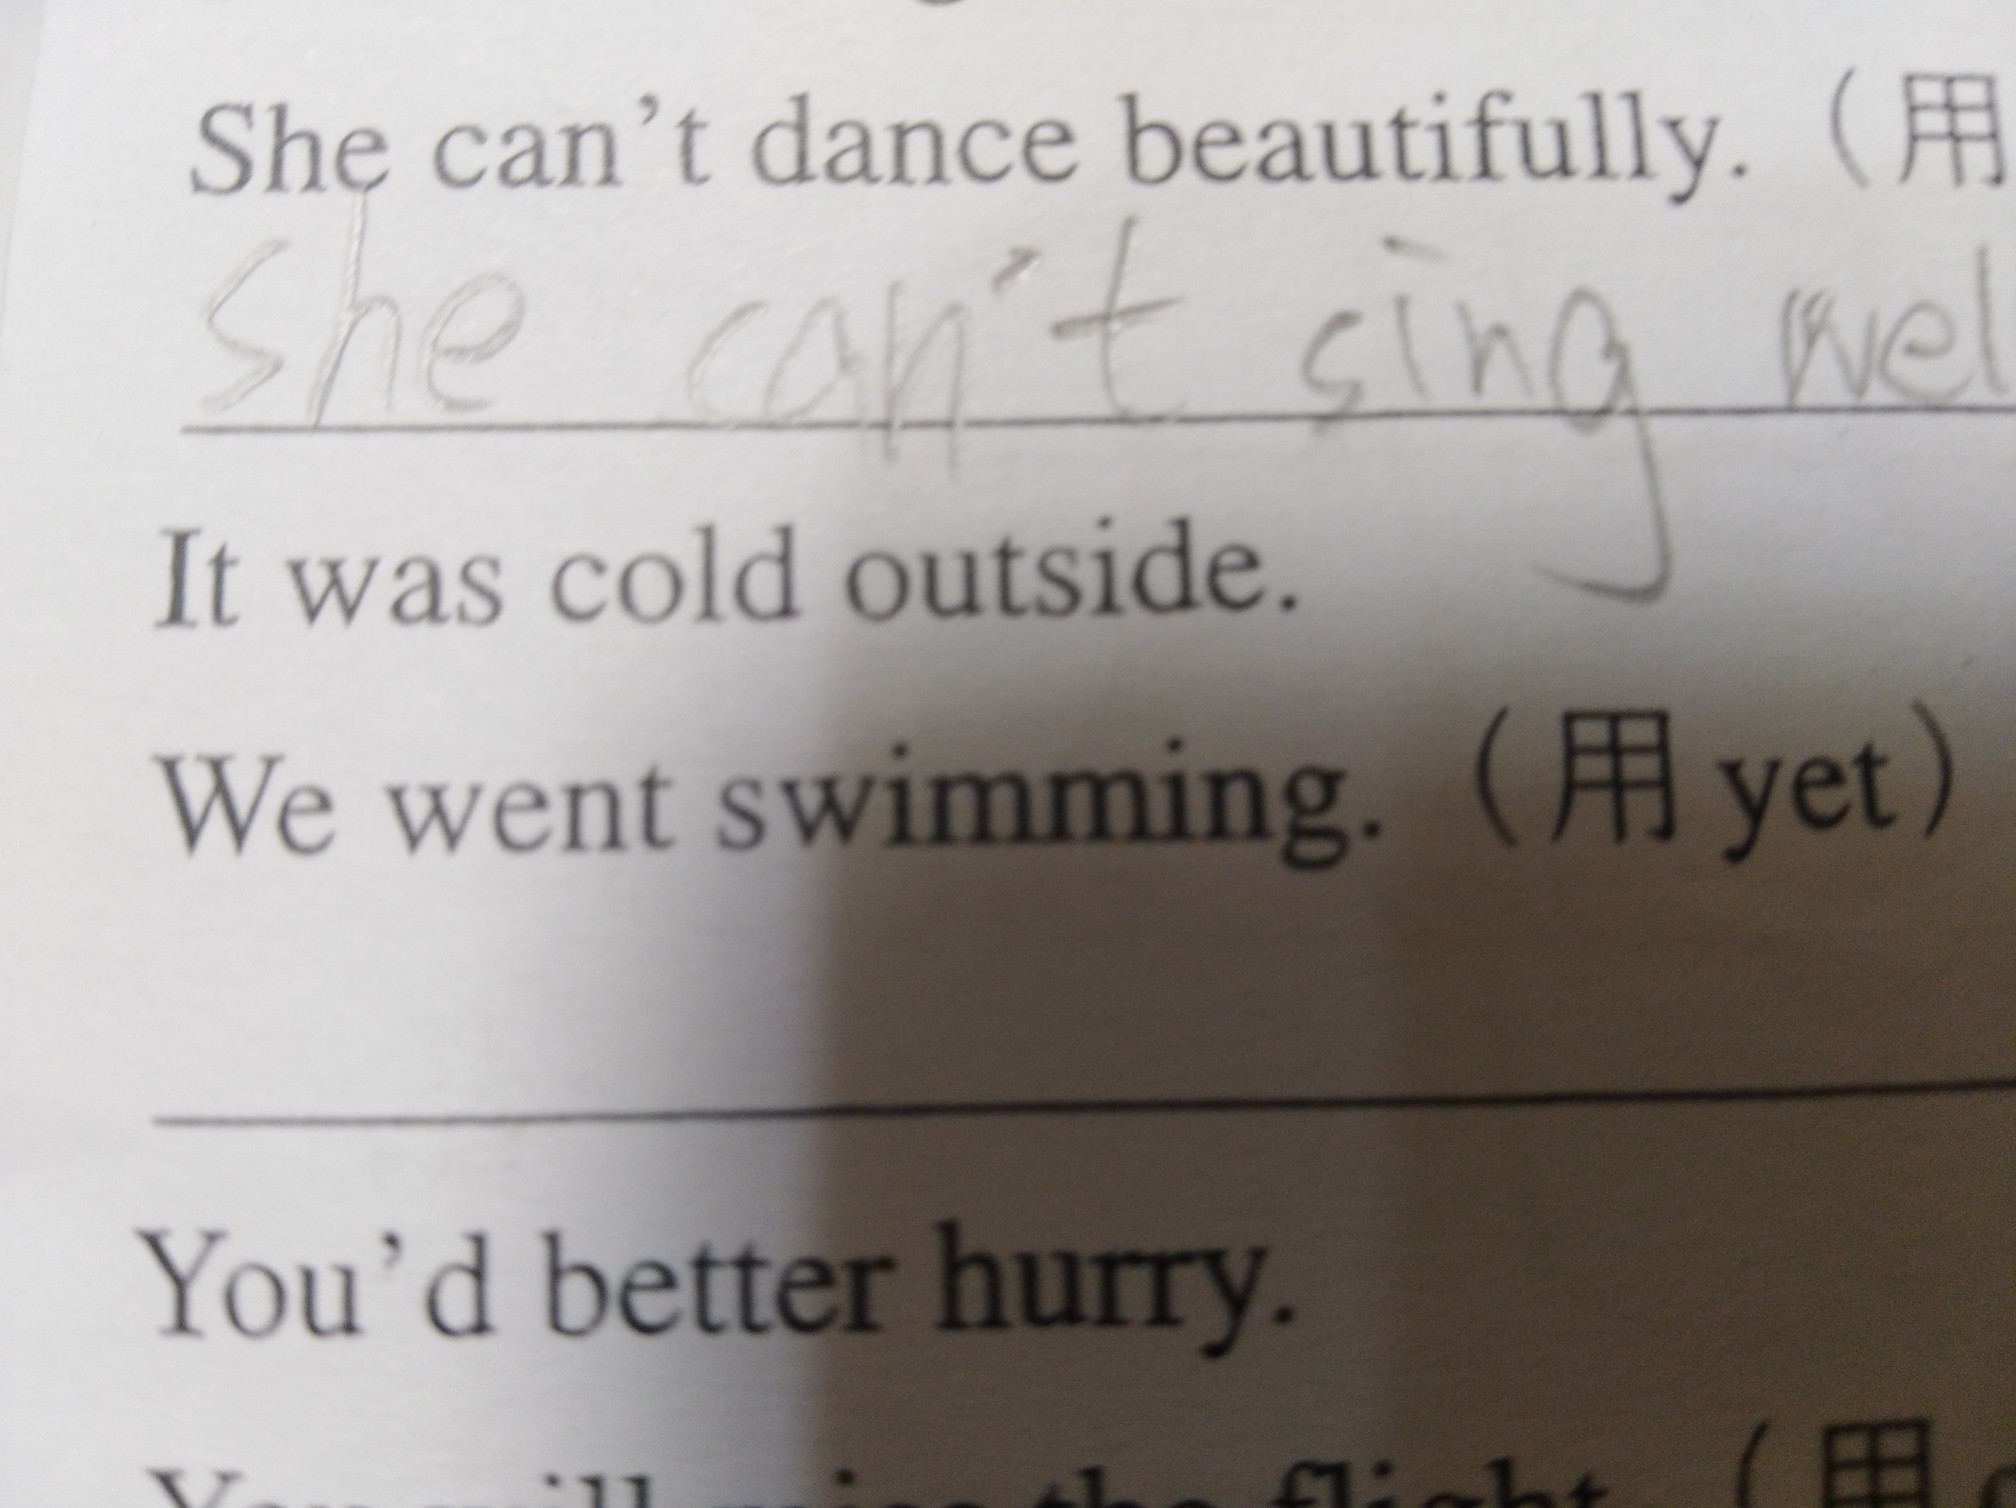 She can't dance beautifully.（用
she can't sing wel
It was cold outside.
We went swimming.（用 yet）
You'd better hurry.
You will miss the flight.（用